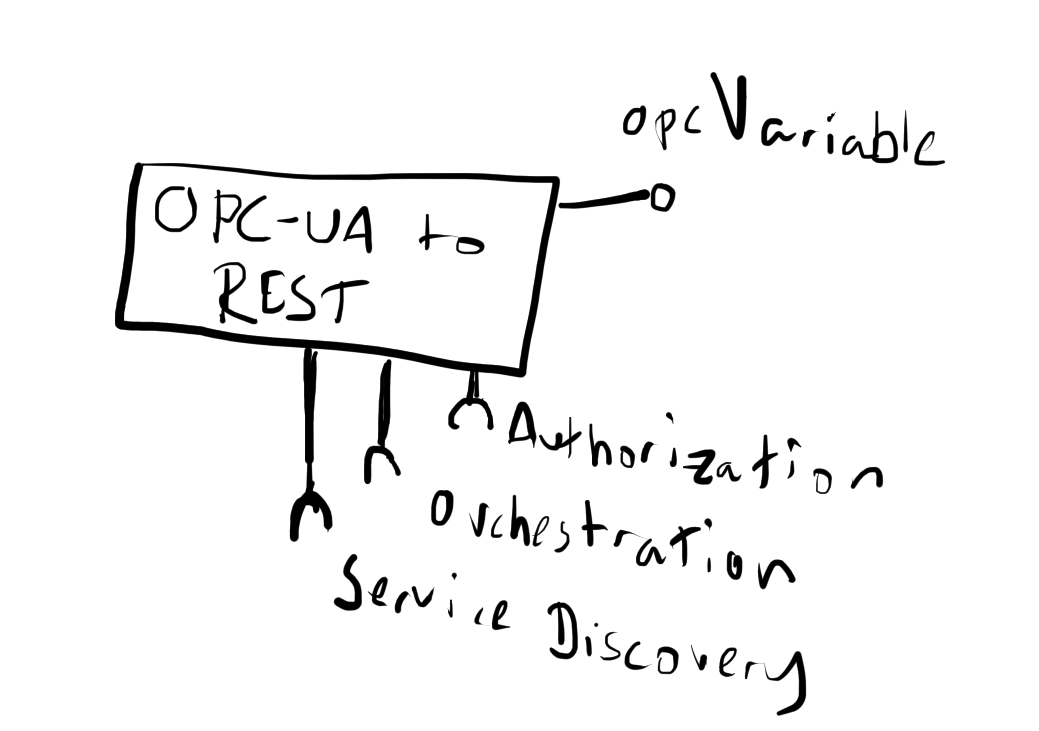 opcVariable
OPC-UA to
REST
Authorization
Orchestration
Service Discovery